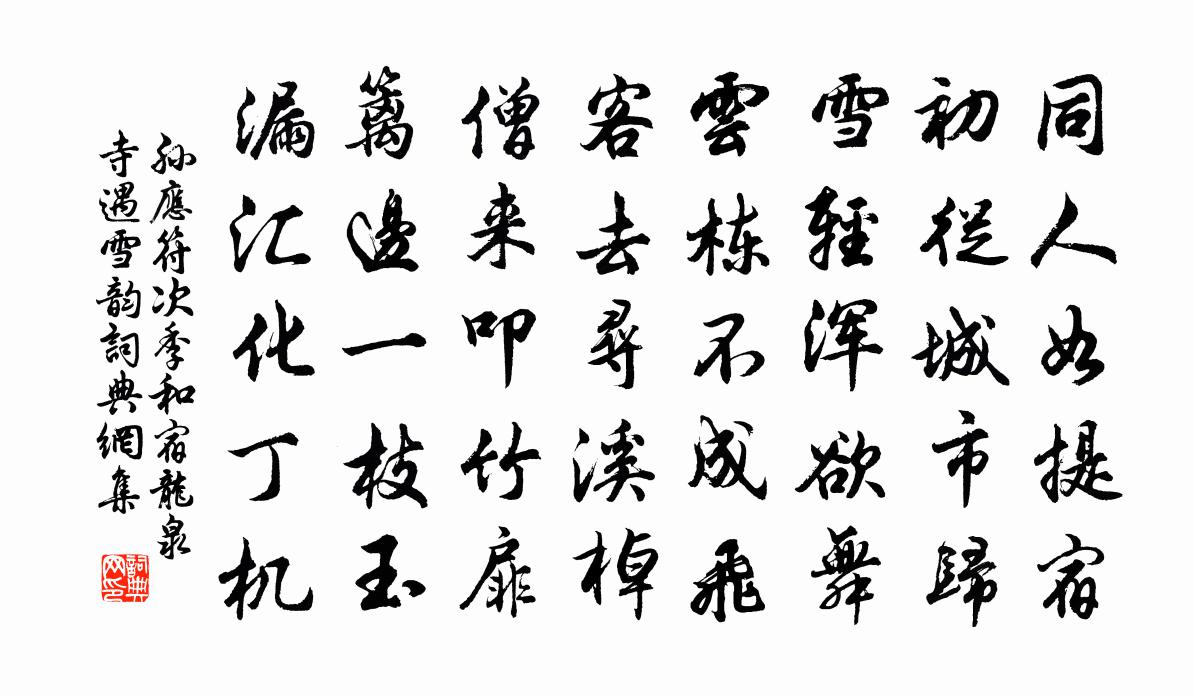 同人如提宿
初從城市歸
雪輕渾欲舞
雲棟不成飛
客去尋溪棹
僧来叩竹扉
籬邊一枝玉
漏汇化丁机
孫應符次季和宿龍泉
寺遇雪韵詞典網集
詞典
网印